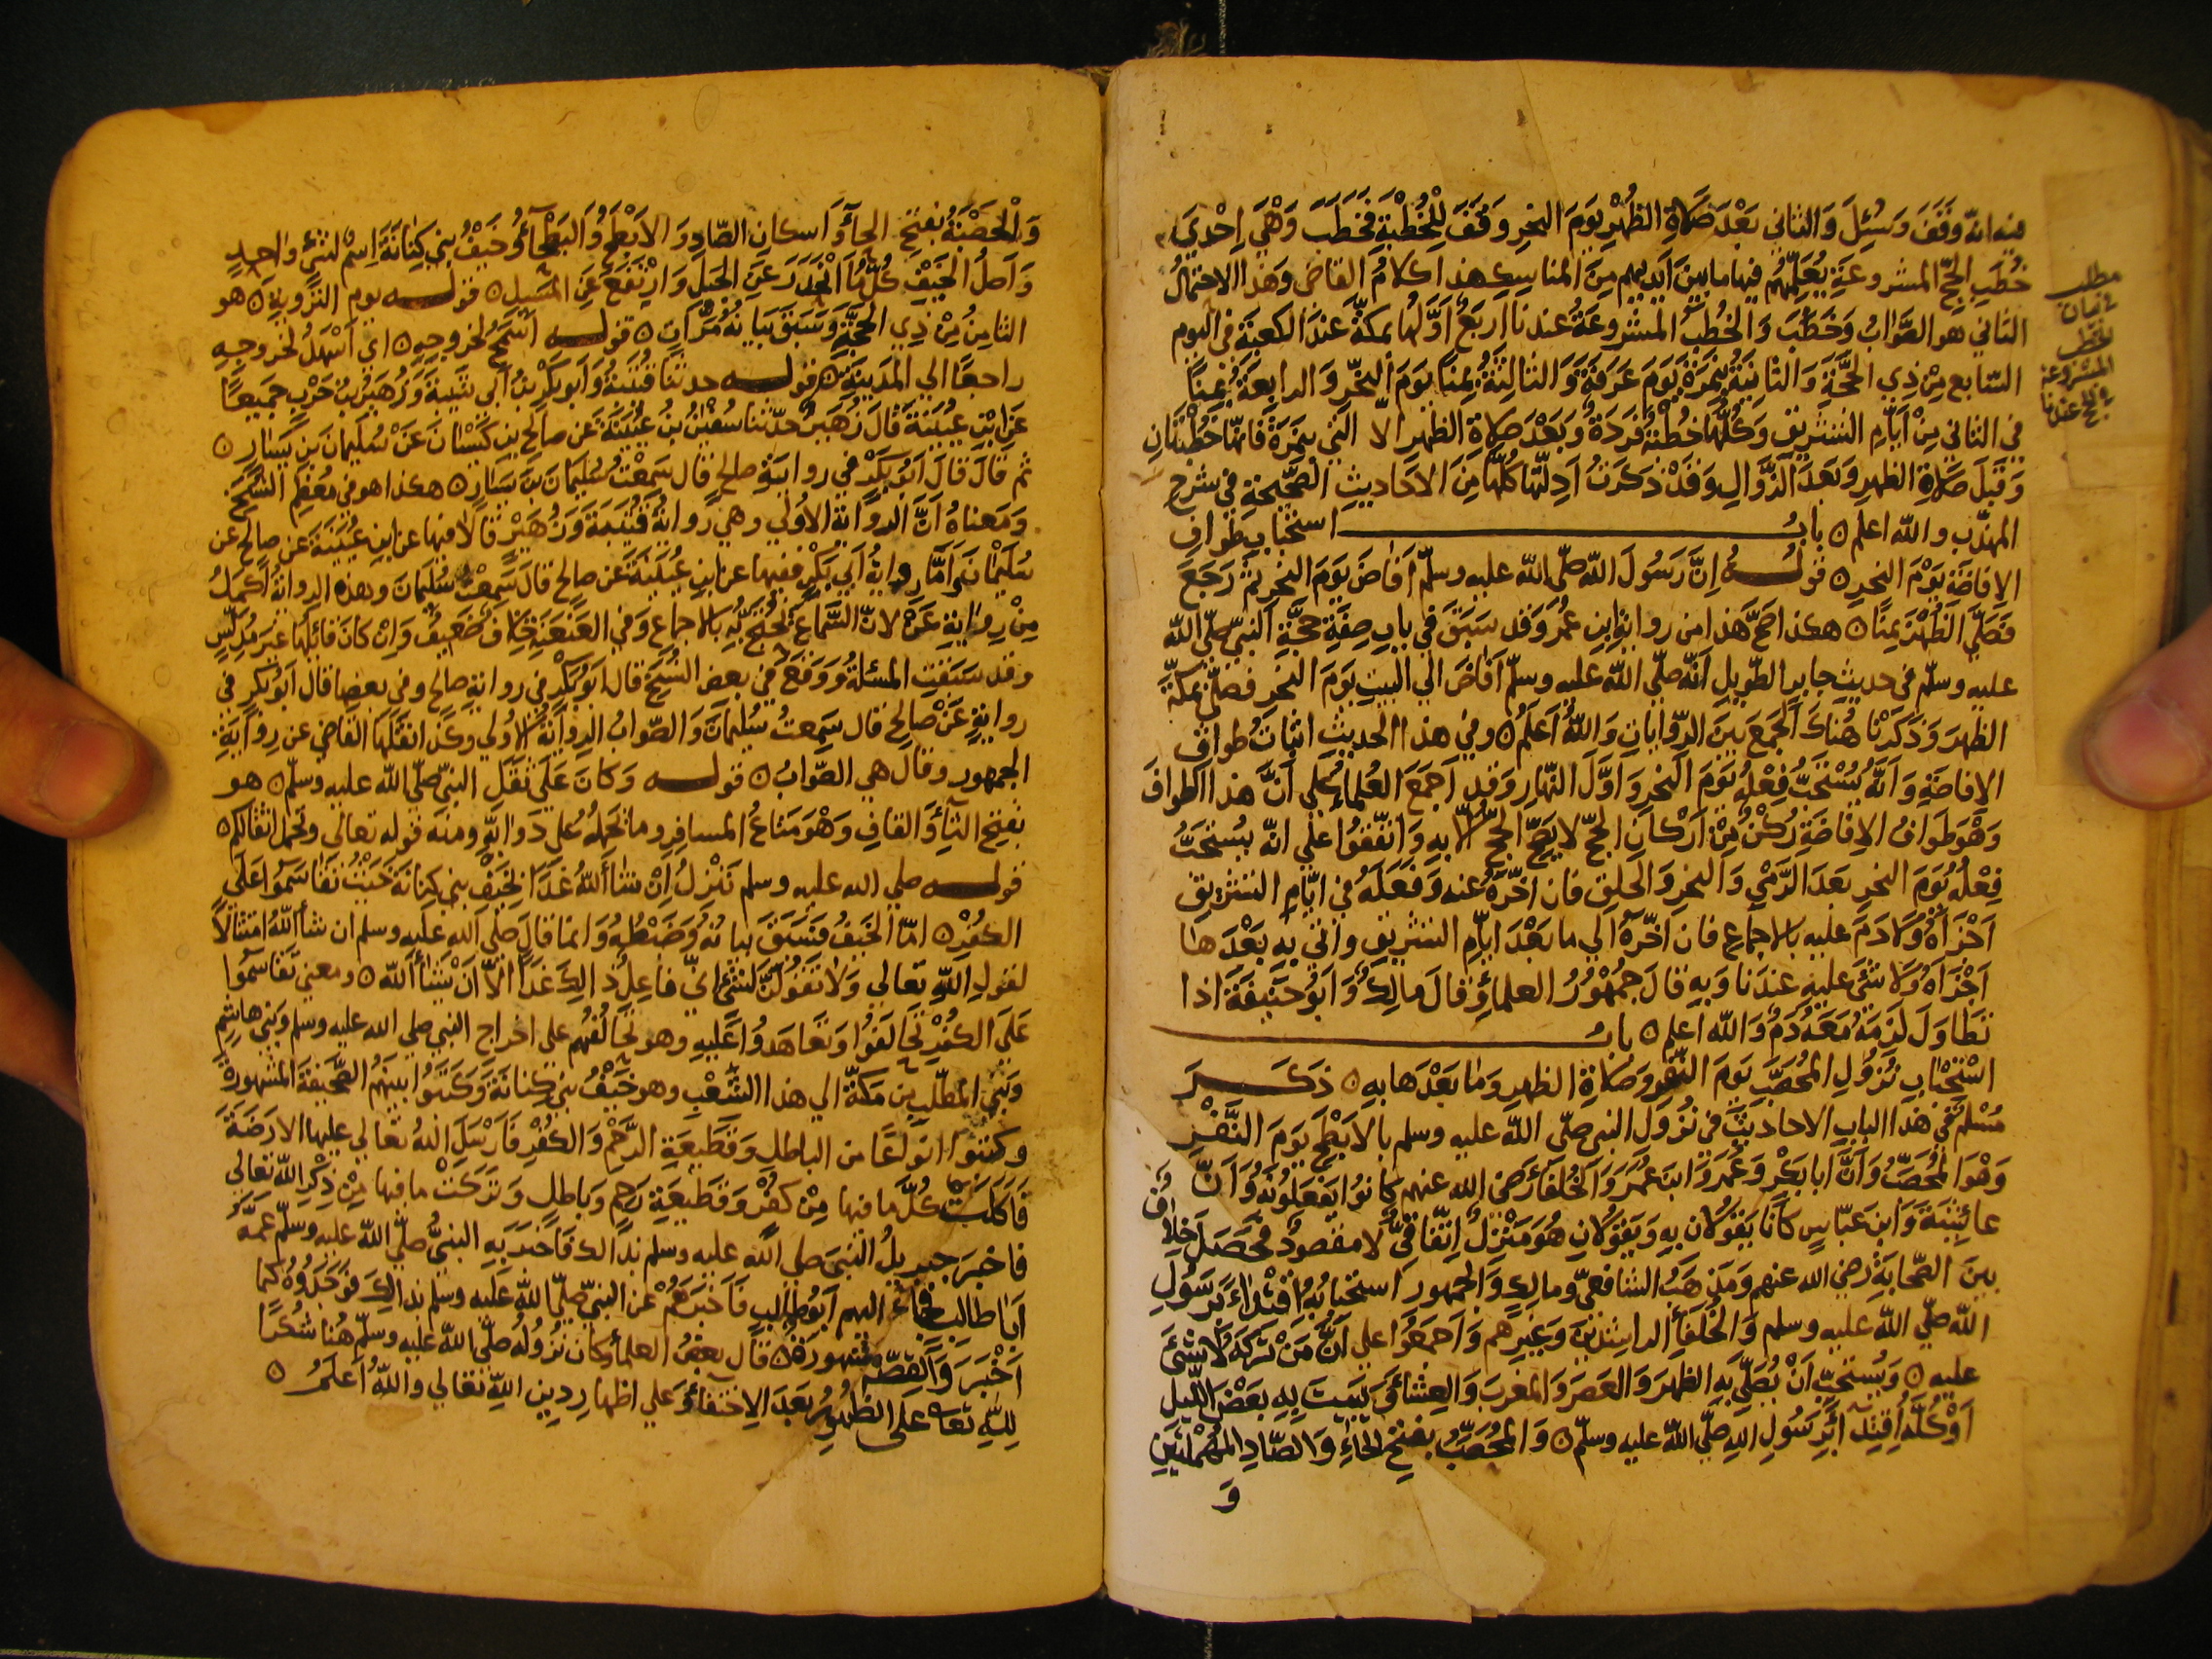 فيه انه وقف وسئل والثاني بعد صلاة الظهر يوم النحر وقف للخطبة فخطب وهي احدي
خطب الحج المشروعة يعلمهم فيها ما بين ايديهم من المناسك هذا كلام القاضي وهذا الاحتمال
الثاني هو الصواب وخطب والخطب المشروعة عندنا اربع اولها بمكة عند الكعبة في اليوم
السابع من ذي الحجة والثانية بنمرة يوم عرفة والثالثة بمنا يوم النحر والرابعة بمنا
في الثاني من ايام التشريق وكلها خطبة فردة وبعد صلاة الظهر الا التي بنمرة فانها خطبتان
وقبل صلاة الظهر وبعد الزوال وقد ذكرت ادلتها كلها من الاحاديث الصحيحة في شرح
المهذب والله اعلم باب استحباب طواف
الافاضة يوم النحر قوله ان رسول الله صلي الله عليه وسلم افاض يوم النحر ثم رجع
فصلي الظهر بمنا هكذا صح هذا من رواية ابن عمر وقد سبق في باب صفة حجة النبي صلي الله
عليه وسلم في حديث جابر الطويل انه صلي الله عليه وسلم افاض الي البيت يوم النحر فصلي بمكة
الظهر وذكرنا هناك الجمع بين الروايات والله اعلم وفي هذا الحديث اثبات طواف
الافاضة وانه يستحب فعله يوم النحر واول النهار وقد اجمع العلماء علي ان هذا الطواف
وهو طواف الافاضة ركن من اركان الحج لا يصح الحج الا به واتفقوا علي انه يستحب
فعله يوم النحر بعد الرمي والنحر والحلق فان اخره عنه وفعله في ايام التشريق
اجزاه ولا دم عليه بالاجماع فان اخره الي ما بعد ايام التشريق واتى به بعدها
اجزاه ولا شئ عليه عندنا وبه قال جمهور العلماء وقال مالك وابو حنيفة اذا
تطاول لزمه معه دم والله اعلم باب
استحباب نزول المحصب يوم النفر وصلاة الظهر وما بعدها به ذكر
مسلم في هذا الباب الاحاديث في نزول النبي صلي الله عليه وسلم بالابطح يوم النفر
وهو المحصب وان ابا بكر وعمر وابن عمر والخلفاء رضي الله عنهم كانوا يفعلونه وان
عائشة وابن عباس كانا يقولان به ويقولان هو منزل اتفاقي لا مقصود فحصل خلاف
بين الصحابة رضي الله عنهم ومذهب الشافعي ومالك والجمهور استحبابه اقتداء برسول
الله صلي الله عليه وسلم والخلفاء الراشدين وغيرهم واجمعوا علي ان من تركه لا شئ
عليه ويستحب ان يصلي به الظهر والعصر والمغرب والعشاء ويبيت به بعض الليل
او كله اقتداء برسول الله صلي الله عليه وسلم والمحصب بفتح الحاء والصاد المهملتين
و
مطلب
في بيان
الخطب
المشروعة
في الحج عندنا
والحصبة بفتح الحاء واسكان الصاد والابطح والبطحاء وخيف بني كنانة اسم لشئ واحد
واصل الخيف كل ما انحدر عن الجبل وارتفع عن المسيل قوله يوم التروية هو
الثامن من ذي الحجة وسبق بيانه مرات قوله اسمح لخروجه اي اسهل لخروجه
راجعا الي المدينة قوله حدثنا قتيبة وابو بكر بن ابي شيبة وزهير بن حرب جميعا
عن ابن عيينة قال زهير حدثنا سفين بن عيينة عن صالح بن كيسان عن سليمان بن يسار
ثم قال قال ابو بكر في رواية صالح قال سمعت سليمان بن يسار هكذا هو في معظم النسخ
ومعناه ان الرواية الاولي وهي رواية قتيبة وزهير قالا فيها عن ابن عيينة عن صالح عن
سليمان واما رواية ابي بكر ففيها عن ابن عيينة عن صالح قال سمعت سليمان وهذه الرواية اكمل
من رواية عن لان السماع يحتج به بالاجماع وفي العنعنة خلاف ضعيف وان كان قائلها غير مدلس
وقد سبقت المسئلة ووقع في بعض النسخ قال ابو بكر في رواية صالح وفي بعضها قال ابو بكر في
رواية عن صالح قال سمعت سليمان والصواب الرواية الاولي وكذا نقلها القاضي عن رواية
الجمهور وقال هي الصواب قوله وكان علي ثقل النبي صلي الله عليه وسلم هو
بفتح الثاء والقاف وهو متاع المسافر وما يحمله علي دوابه ومنه قوله تعالي وتحمل اثقالكم
قوله صلي الله عليه وسلم ننزل ان شاء الله غدا بخيف بني كنانة حيث تقاسموا علي
الكفر اما الخيف فسبق بيانه وضبطه وانما قال صلي الله عليه وسلم ان شاء الله امتثالا
لقول الله تعالي ولا تقولن لشئ اني فاعل ذلك غدا الا ان يشاء الله ومعني تقاسموا
علي الكفر تحالفوا وتعاهدوا عليه وهو تحالفهم علي اخراج النبي صلي الله عليه وسلم وبني هاشم
وبني المطلب من مكة الي هذا الشعب وهو خيف بني كنانة وكتبوا بينهم الصحيفة المشهورة
وكتبوا انواعا من الباطل وقطيعة الرحم والكفر فارسل الله تعالي عليها الارضة
فاكلت كل ما فيها من كفر وقطيعة رحم وباطل وتركت ما فيها من ذكر الله تعالي
فاخبر جبريل النبي صلي الله عليه وسلم بذالك فاخبر به النبي صلي الله عليه وسلم عمه
ابا طالب فجاء اليهم ابو طالب فاخبرهم عن النبي صلي الله عليه وسلم بذالك فوجدوه كما
اخبر والقصة مشهورة قال بعض العلماء وكان نزوله صلي الله عليه وسلم هنا شكرا
لله تعا على الظهور بعد الاختفاء وعلي اظهار دين الله تعالي والله اعلم